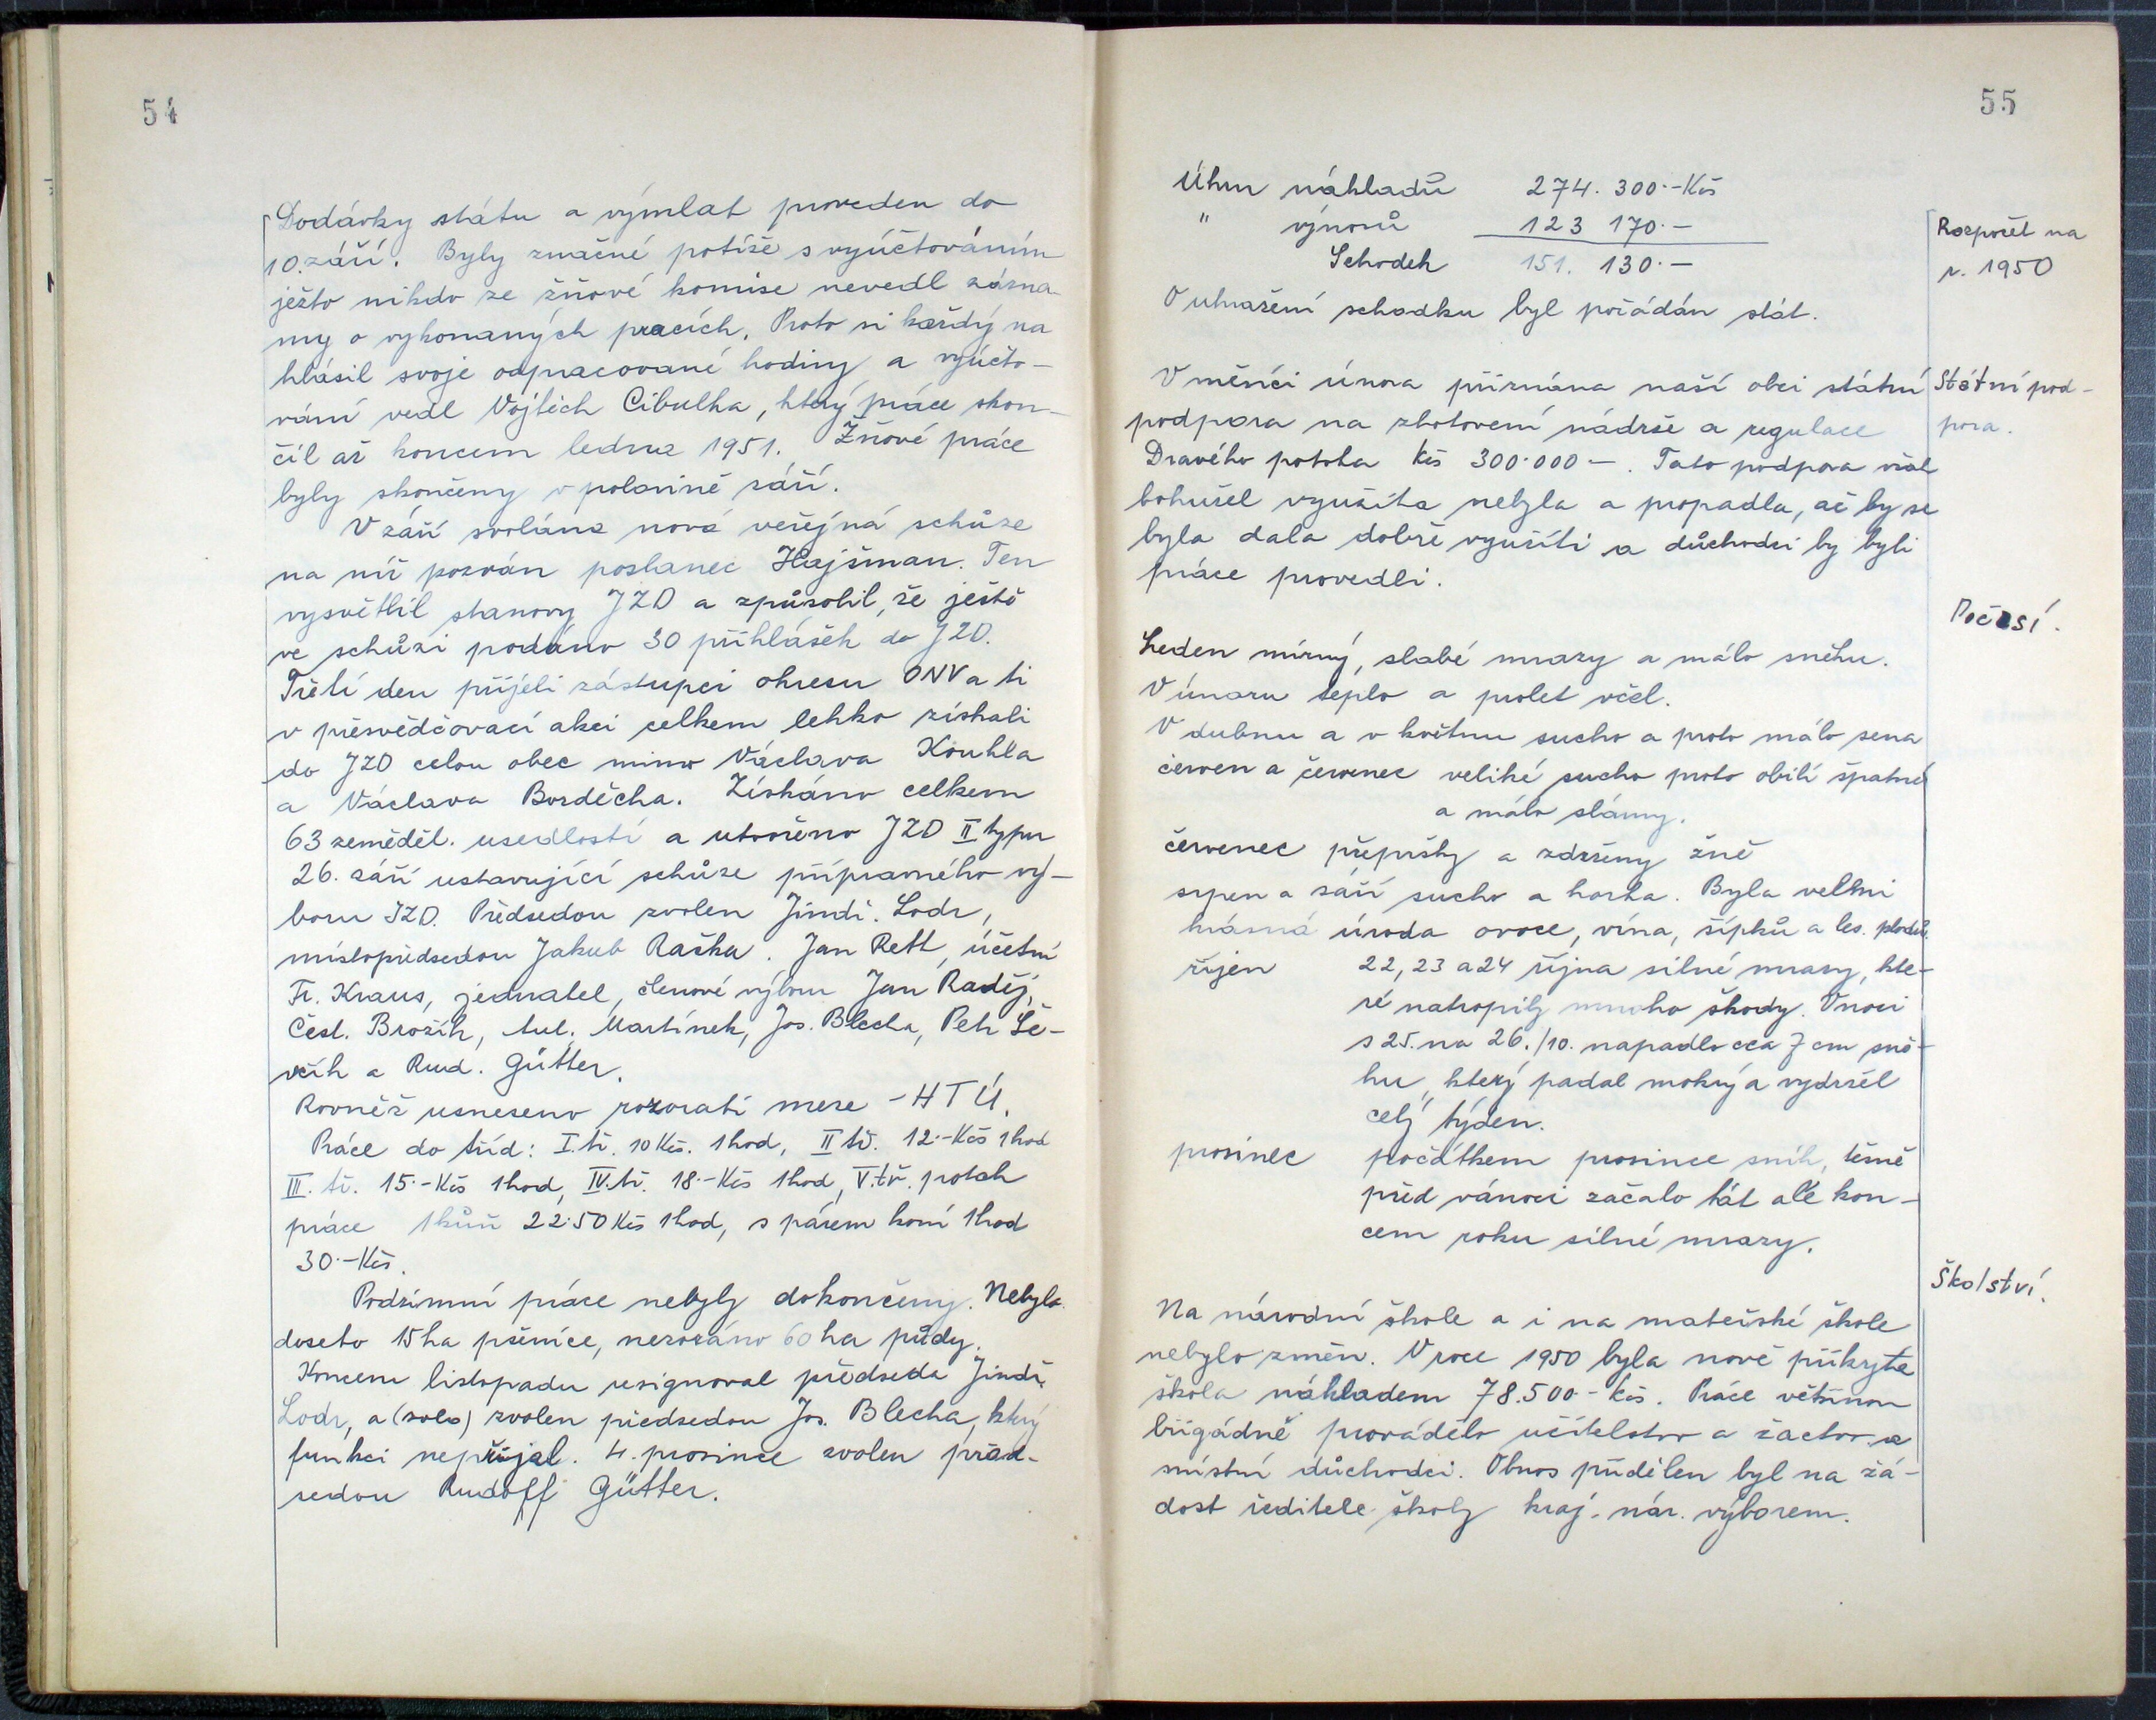 54
Dodávky státu a výmlat proveden do
10. září. Byly značné potíže s vyúčtováním
ježto nikdo ze žňové komise nevedl zázna-
my o vykonaných pracích. Proto si každý na
hlásil svoje odpracované hodiny a vyúčto-
vání vedl Vojtěch Cibulka, který práce skon-
čil až koncem ledna 1951. Žňové práce
byly skončeny v polovině září.
V září svolána nová veřejná schůze
na níž pozván poslanec Hajšman. Ten
vysvětlil stanovy JZD a způsobil, že ještě
ve schůzi podáno 30 přihlášek do JZD.
Třetí den přijeli zástupci okresu ONV a ti
v přesvědčovací akci celkem lehko získali
do JZD celou obec mimo Václava Kouhla
a Václava Borděcha. Získáno celkem
63 zeměděl. usedlostí a utvořeno JZD II typu
26. září ustavující schůze přípravného vý-
boru JZD. Předsedou zvolen Jindř. Lodr,
místopředsedou Jakub Raška. Jan Rett, účetní
Fr. Kraus, jednatel, členové výboru Jan Raděj,
Čest. Brožík, Ant. Martínek, Jos. Blecha, Petr Še-
včík a Rud. Gütter.
Rovněž usneseno rozorati meze - HTÚ.
Práce do tříd: I. tř. 10 Kčs. 1 hod, II tř. 12.-Kčs 1 hod
III. tř. 15.-Kčs 1 hod, IV. tř. 18.-Kčs 1 hod, V. tř. potah
práce 1 kůň 22.50 Kčs 1 hod, s párem koní 1 hod
30.-Kčs.
Podzimní práce nebyly dokončeny. Nebylo
doseto 15 ha pšenice, nezoráno 60 ha půdy.
Koncem listopadu resignoval předseda Jindř.
Lodr, a (zvolen) zvolen předsedou Jos. Blecha, který
funkci nepřijal. 4. prosince zvolen před-
sedou Rudolf Gütter.
55
Úhrn nákladů 274. 300.-Kčs
" výnosů 123 170.-
Schodek 151. 130.-
O uhražení schodku byl požádán stát.
Rozpočet na
r. 1950
V měsíci únoru přiznána naší obci státní
podpora na zhotovení nádrže a regulace
Dravého potoka Kčs 300.000 -. Tato podpora však
bohužel využita nebyla a propadla, ač by se
byla dala dobře využíti a důchodci by byli
práce provedli.
Státní pod-
pora.
Počasí.
Leden mírný, slabé mrazy a málo sněhu.
V únoru teplo a prolet včel.
V dubnu a v květnu sucho a proto málo sena
červen a červenec veliké sucho proto obilí špatné
a málo slámy.
červenec přepršky a zdrženy žně
srpen a září sucho a horka. Byla velmi
krásná úroda ovoce, vína, šípků a les. plodů.
říjen 22, 23 a 24 října silné mrazy, kte-
ré natropily mnoho škody. V noci
s 25. na 26./10. napadlo cca 7 cm sně-
hu, který padal mokrý a vydržel
celý týden.
prosinec počátkem prosince sníh, těsně
před vánoci začalo tát ale kon-
cem roku silné mrazy.
Školství.
Na národní škole a i na mateřské škole
nebylo změn. V roce 1950 byla nově přikryta
škola nákladem 78.500 - Kčs. Práce většinou
brigádně provádělo učitelstvo a žactvo a
místní důchodci. Obnos přidělen byl na žá-
dost ředitele školy kraj. nár. výborem.